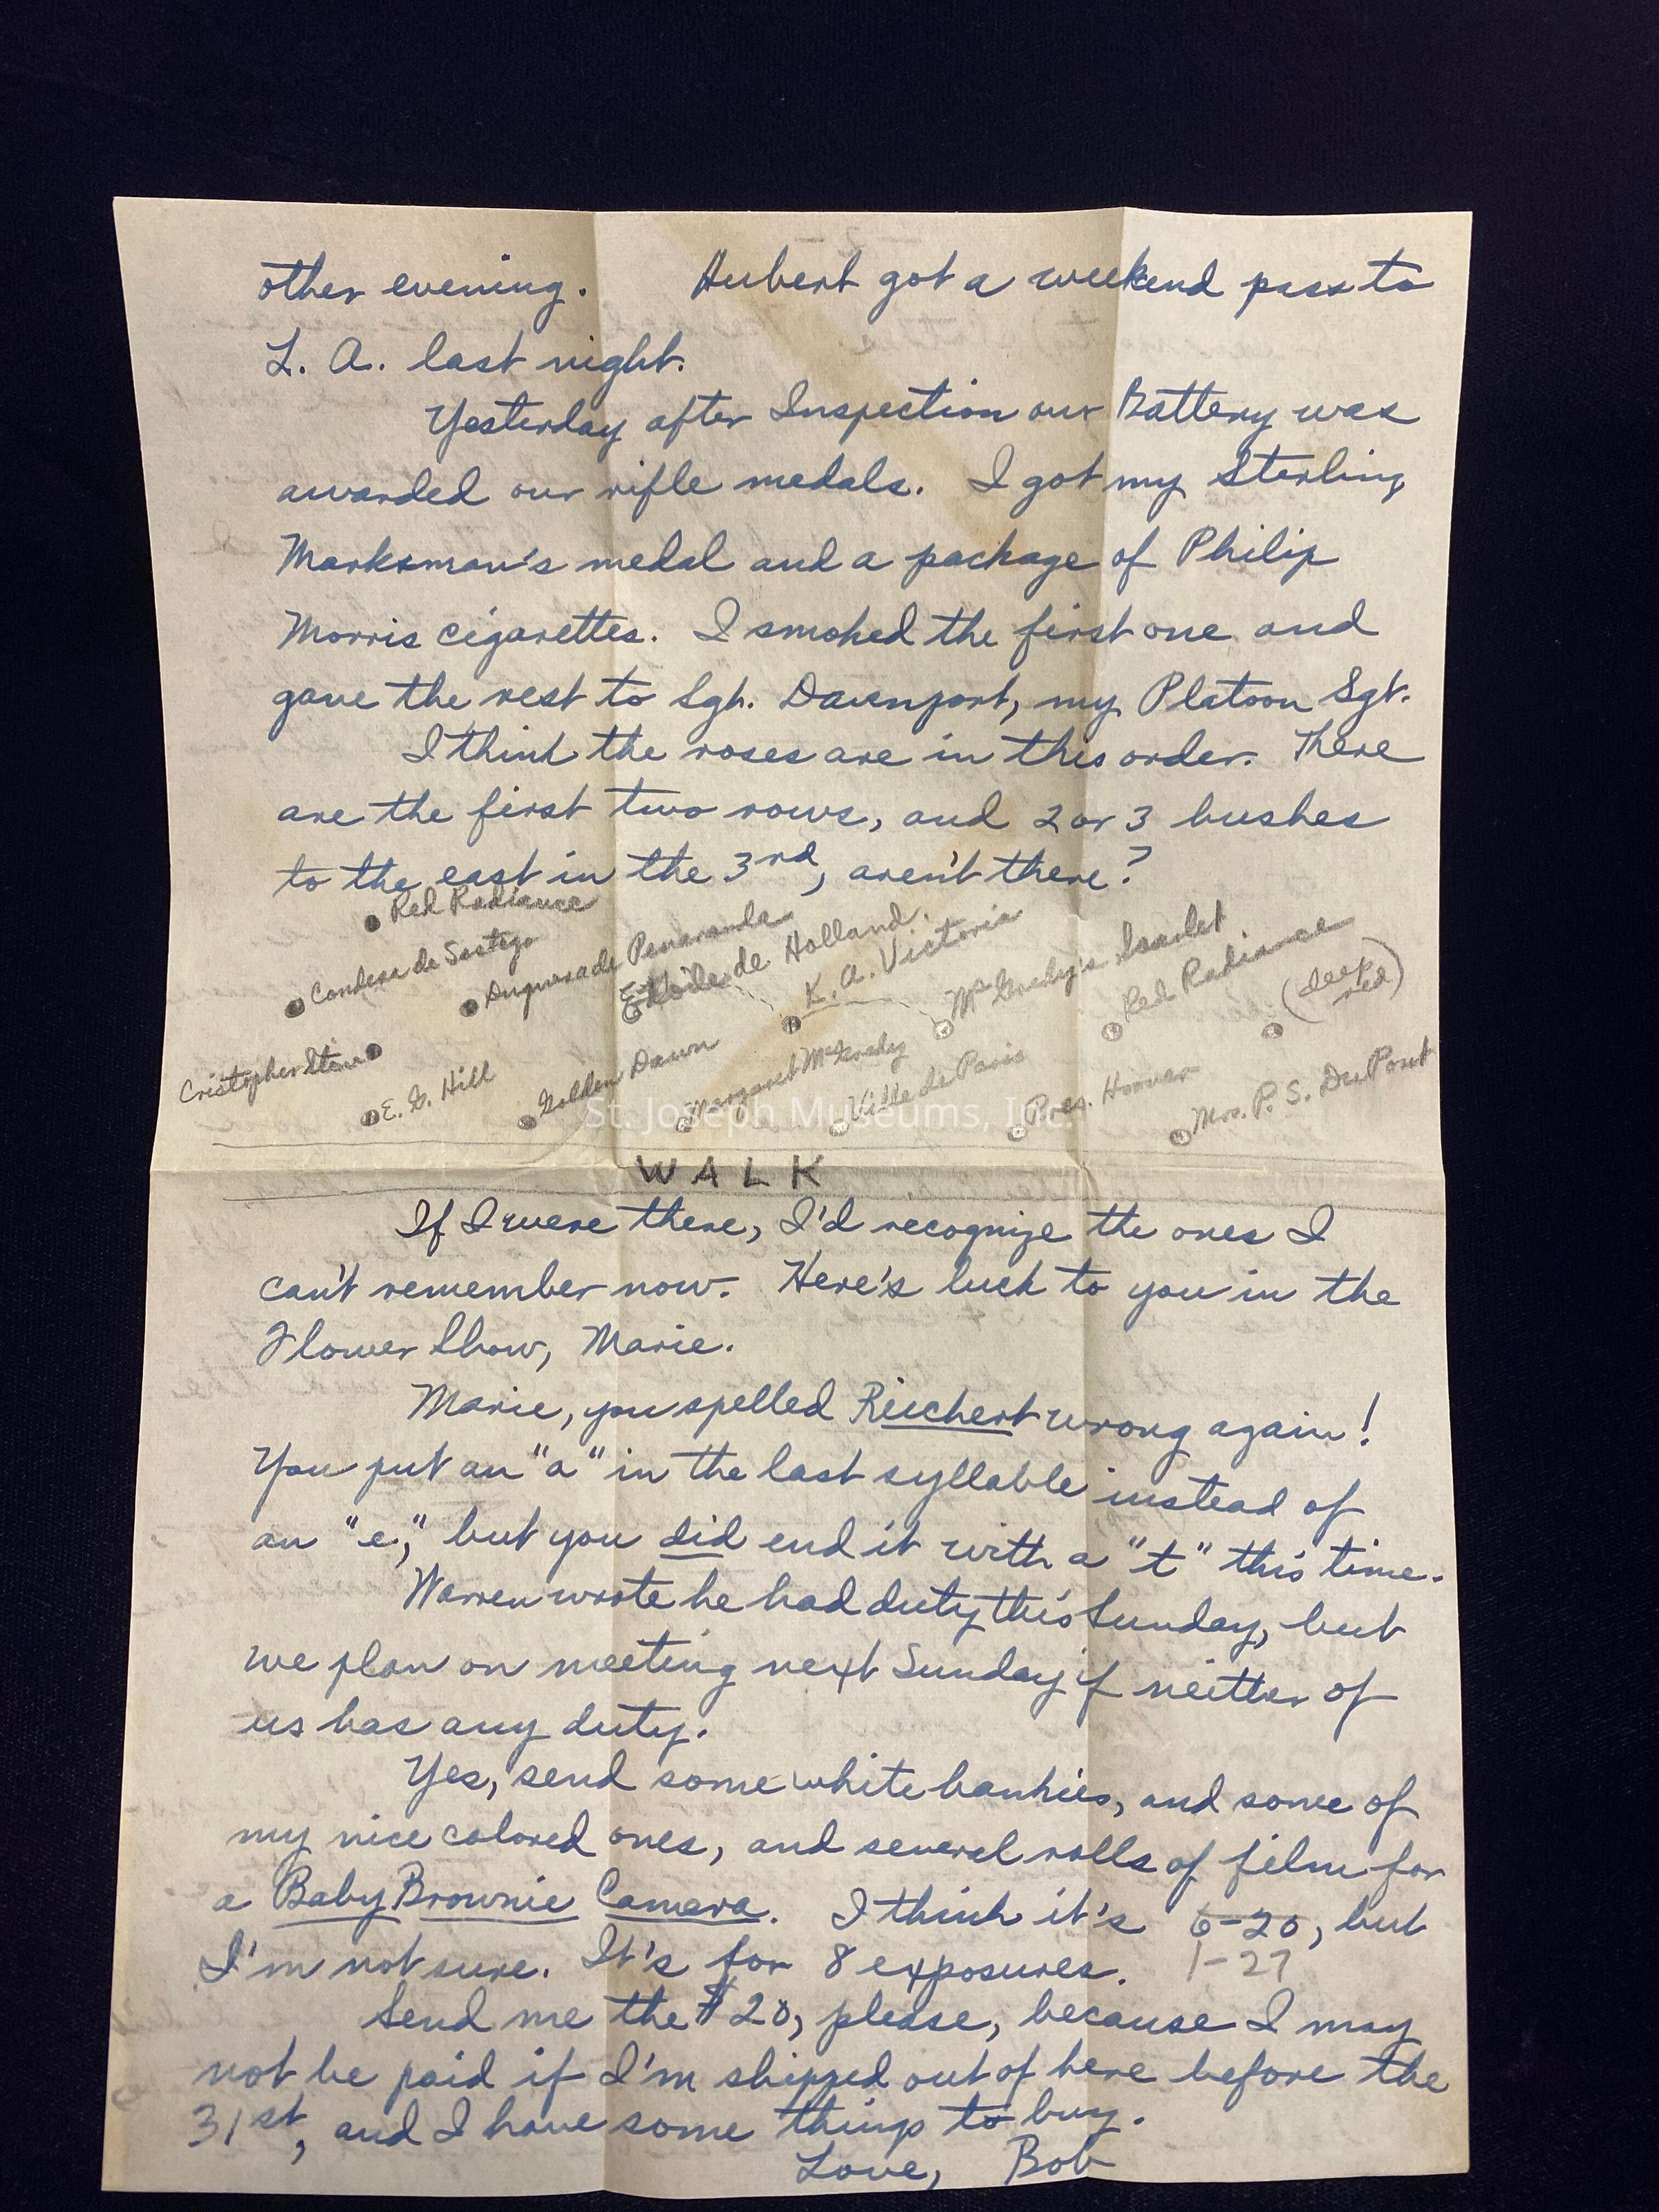 other evening. Hubert got a weekend pass to
L. A. last night.
Yesterday after Inspection our Battery was
awarded our rifle medals. I got my Sterling
Marksman's medal and a package of Philip
Morris cigarettes. I smoked the first one and
gave the rest to Sgt. Davenport, my Platoon Sgt.
I think the roses are in this order. There
are the first two rows, and 2 or 3 bushes
to the east in the 3rd, aren't there?
Red Radiance
Condesa de Sastago
Duquesa de Penaranda
Etoile de Holland.
K. A. Victoria
McGredy's Scarlet
Red Radiance
(deep red)
Cristopher Stone
E. G. Hill
Golden Dawn
Margaret McGredy
Ville de Paris
Pres. Hoover
Mrs. P. S. DuPont
St. Joseph Museums, Inc.
WALK
If I were there, I'd recognize the ones I
can't remember now. Here's luck to you in the
Flower Show, Marie.
Marie, you spelled Reichert wrong again!
You put an "a" in the last syllable instead of
an "e," but you did end it with a "t" this time.
Warren wrote he had duty this Sunday, but
we plan on meeting next Sunday if neither of
us has any duty.
Yes, send some white hankies, and some of
my nice colored ones, and several rolls of film for
a Baby Brownie Camera. I think it's 6-20, but
I'm not sure. It's for 8 exposures. 1-27
Send me the $20, please, because I may
not be paid if I'm shipped out of here before the
31st, and I have some things to buy.
Love, Bob